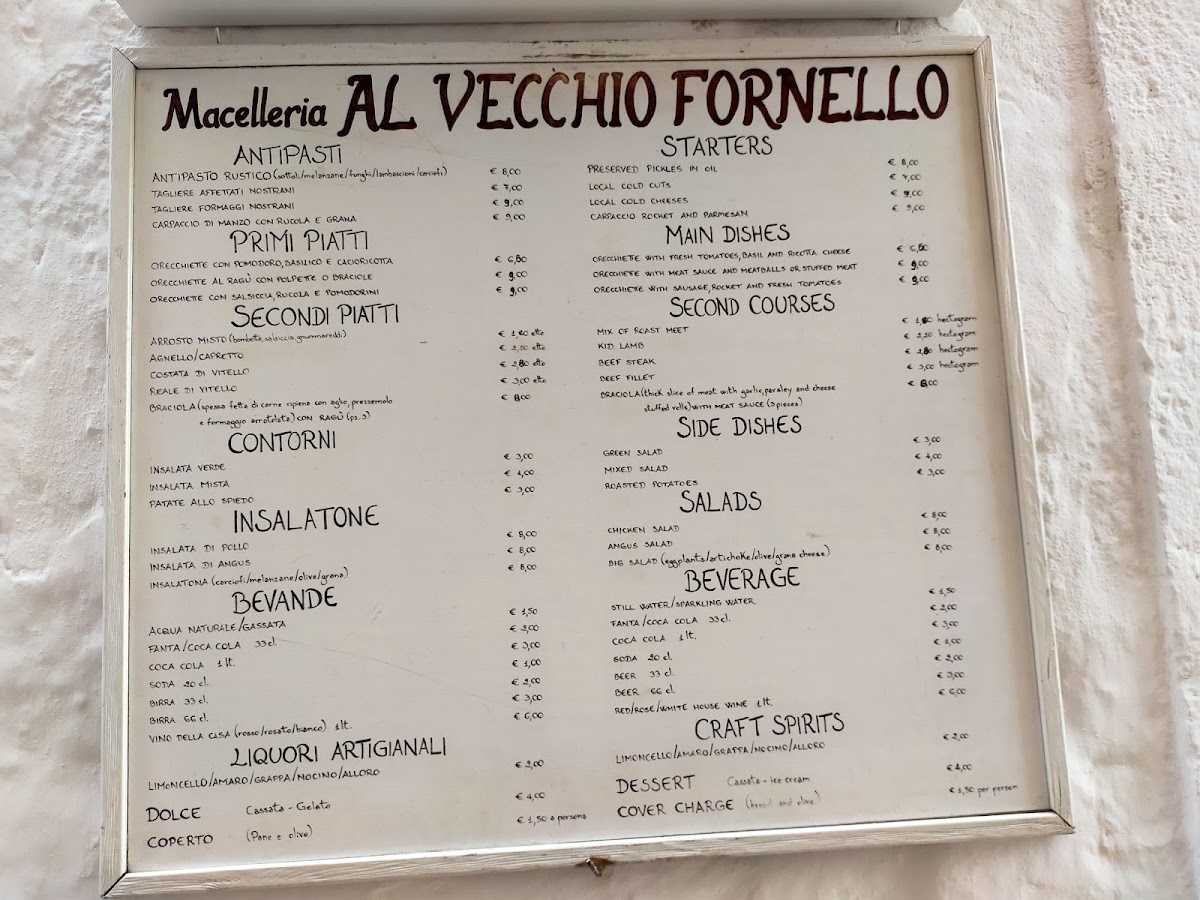 Macelleria AL VECCHIO FORNELLO
ANTIPASTI
ANTIPASTO RUSTICO (sottoli/melanzane/funghi/lambascioni/carciofi) € 8,00
TAGLIERE AFFETTATI NOSTRANI € 7,00
TAGLIERE FORMAGGI NOSTRANI € 9,00
CARPACCIO DI MANZO CON RUCOLA E GRANA € 9,00
PRIMI PIATTI
ORECCHIETTE CON POMODORO, BASILICO E CACIORICOTTA € 6,50
ORECCHIETTE AL RAGÙ CON POLPETTE O BRACIOLE € 9,00
ORECCHIETTE CON SALSICCIA, RUCOLA E POMODORINI € 9,00
SECONDI PIATTI
ARROSTO MISTO (bombette, salsiccia, gnummareddi) € etto
AGNELLO/CAPRETTO € 2,20 etto
COSTATA DI VITELLO € 2,80 etto
REALE DI VITELLO € 3,00 etto
BRACIOLA (spessa fetta di carne ripiena con aglio, prezzemolo € 8,00
e formaggio arrotolata) CON RAGÙ (pz. 3)
CONTORNI
INSALATA VERDE € 3,00
INSALATA MISTA € 4,00
PATATE ALLO SPIEDO € 3,00
INSALATONE
INSALATA DI POLLO € 8,00
INSALATA DI ANGUS € 8,00
INSALATONA (carciofi/melanzane/olive/grana) € 8,00
BEVANDE
ACQUA NATURALE/GASSATA € 1,50
FANTA/COCA COLA 33 cl. € 2,00
COCA COLA 1 lt. € 3,00
SODA 20 cl. € 1,00
BIRRA 33 cl. € 2,00
BIRRA 66 cl. € 3,00
VINO DELLA CASA (rosso/rosato/bianco) 1 lt. € 6,00
LIQUORI ARTIGIANALI
LIMONCELLO/AMARO/GRAPPA/NOCINO/ALLORO € 2,00
DOLCE Cassata - Gelato € 4,00
COPERTO (Pane e olive) € 1,50 a persona
STARTERS
PRESERVED PICKLES IN OIL € 8,00
LOCAL COLD CUTS € 7,00
LOCAL COLD CHEESES € 9,00
CARPACCIO ROCKET AND PARMESAN € 9,00
MAIN DISHES
ORECCHIETTE WITH FRESH TOMATOES, BASIL AND RICOTTA CHEESE € 6,50
ORECCHIETTE WITH MEAT SAUCE AND MEATBALLS OR STUFFED MEAT € 9,00
ORECCHIETTE WITH SAUSAGE, ROCKET AND FRESH TOMATOES € 9,00
SECOND COURSES
MIX OF ROAST MEET € hectogram
KID LAMB € 2,20 hectogram
BEEF STEAK € 2,80 hectogram
BEEF FILLET € 3,00 hectogram
BRACIOLA (thick slice of meat with garlic, parsley and cheese € 8,00
stuffed rolls) WITH MEAT SAUCE (3 pieces)
SIDE DISHES
GREEN SALAD € 3,00
MIXED SALAD € 4,00
ROASTED POTATOES € 3,00
SALADS
CHICKEN SALAD € 8,00
ANGUS SALAD € 8,00
BIG SALAD (eggplants/artichoke/olive/grana cheese) € 8,00
BEVERAGE
STILL WATER/SPARKLING WATER € 1,50
FANTA/COCA COLA 33 cl. € 2,00
COCA COLA 1 lt. € 3,00
SODA 20 cl. € 1,00
BEER 33 cl. € 2,00
BEER 66 cl. € 3,00
RED/ROSE/WHITE HOUSE WINE 1 lt. € 6,00
CRAFT SPIRITS
LIMONCELLO/AMARO/GRAPPA/NOCINO/ALLORO € 2,00
DESSERT Cassata - ice cream € 4,00
COVER CHARGE (bread and olive) € 1,50 per person